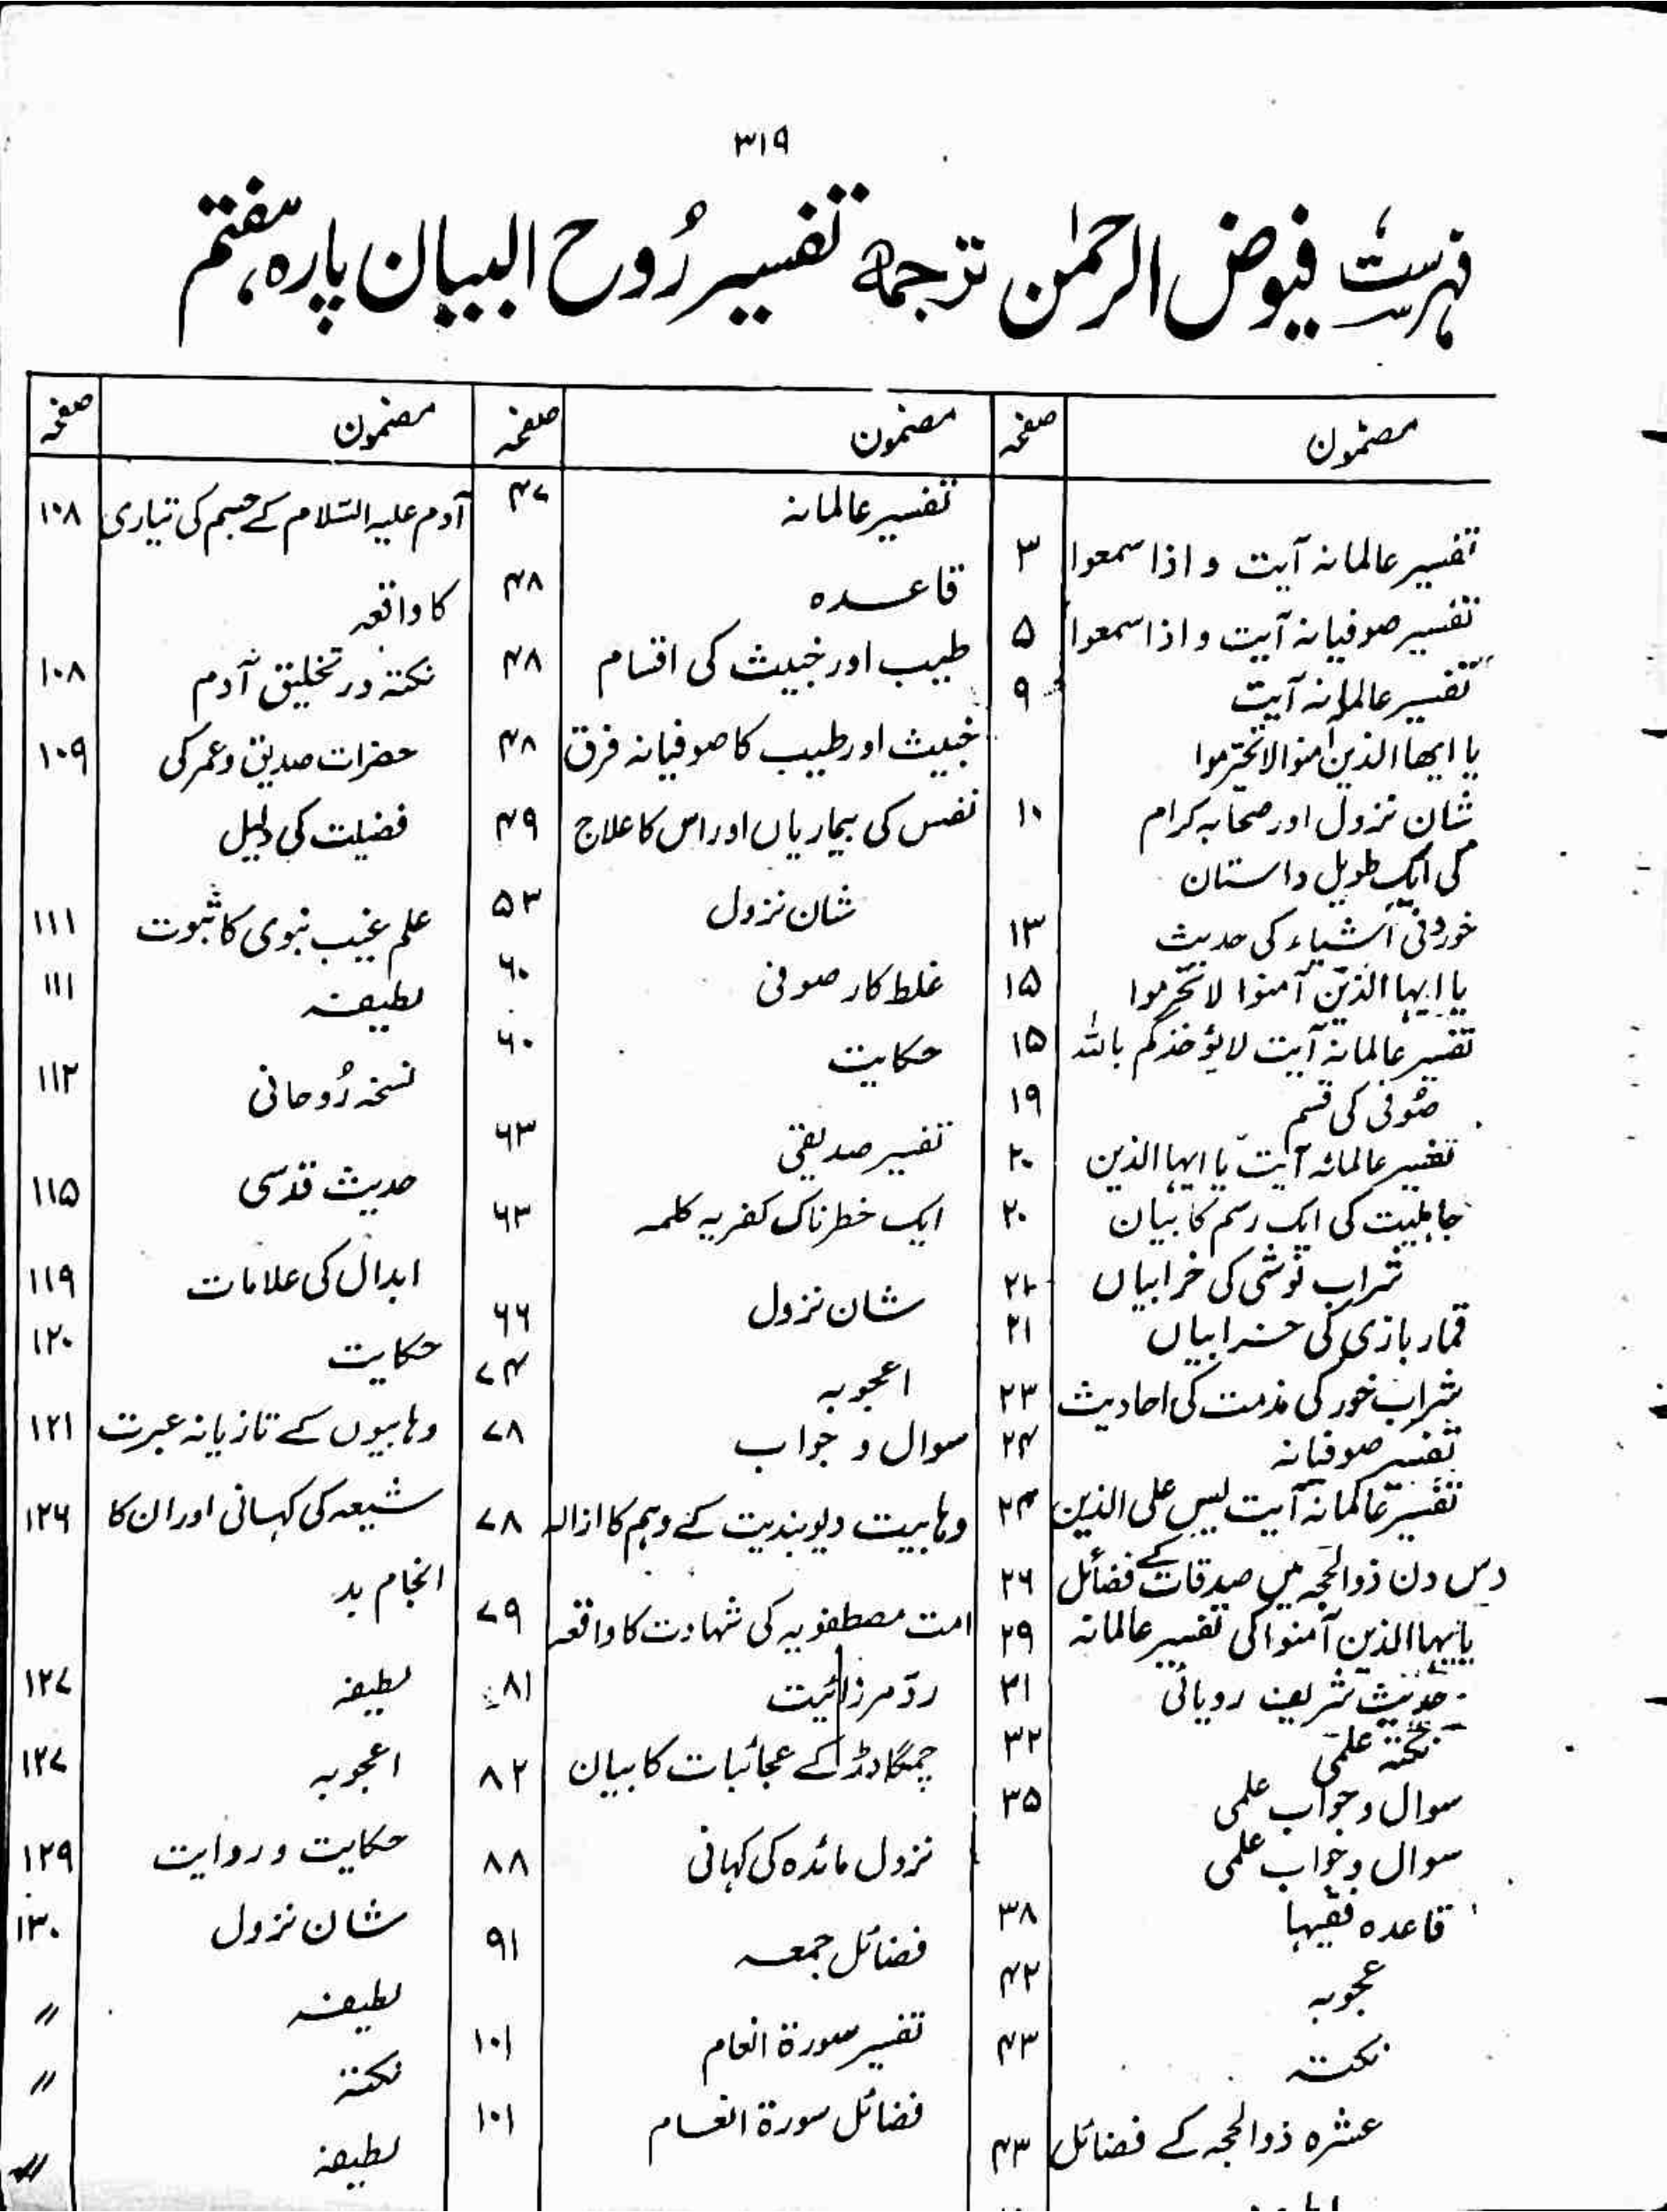 ۳۱۹
فہرست فیوض الرحمٰن ترجمہ تفسیر رُوح البیان پارہ ہفتم
مضمون صفحہ
تفسیر عالمانہ آیت و اذا سمعوا ۳
تفسیر صوفیانہ آیت و اذا سمعوا ۵
تفسیر عالمانہ آیت ۹
یا ایھا الذین اٰمنوا لا تحرموا
شان نزول اور صحابہ کرام ۱۰
کی ایک طویل داستان
خوردنی اشیاء کی حدیث ۱۳
یا ایہا الذین آمنوا لا تحرموا ۱۵
تفسیر عالمانہ آیت لا یؤخذکم باللہ ۱۵
صوفی کی قسم ۱۹
تفسیر عالمانہ آیت یا ایہا الذین ۲۰
جاہلیت کی ایک رسم کا بیان ۲۰
شراب نوشی کی خرابیاں ۲۱
قمار بازی کی خرابیاں ۲۱
شراب خور کی مذمت کی احادیث ۲۳
تفسیر صوفیانہ ۲۴
تفسیر عالمانہ آیت لیس علی الذین ۲۴
دس دن ذوالحجہ میں صدقات کے فضائل ۲۶
یایہا الذین آمنوا کی تفسیر عالمانہ ۲۹
حدیث شریف رویائی ۳۱
نکتہ علمی ۳۲
سوال و جواب علمی ۳۵
سوال و جواب علمی
قاعدہ فقیہا ۳۸
عجوبہ ۴۲
نکتہ ۴۳
عشرہ ذوالحجہ کے فضائل ۴۳
مضمون صفحہ
تفسیر عالمانہ ۴۷
قاعدہ ۴۸
طیب اور خبیث کی اقسام ۴۸
خبیث اور طیب کا صوفیانہ فرق ۴۸
نفس کی بیماریاں اور اس کا علاج ۴۹
شان نزول ۵۳
غلط کار صوفی ۶۰
حکایت ۶۰
تفسیر صدیقی ۶۳
ایک خطرناک کفریہ کلمہ ۶۳
شان نزول ۶۶
اعجوبہ ۷۴
سوال و جواب ۷۸
وہابیت دیوبندیت کے وہم کا ازالہ ۷۸
امت مصطفویہ کی شہادت کا واقعہ ۷۹
ردّ مرزائیت ۸۱
چمگادڑ کے عجائبات کا بیان ۸۲
نزول مائدہ کی کہانی ۸۸
فضائل جمعہ ۹۱
تفسیر سورۃ انعام ۱۰۱
فضائل سورۃ انعام ۱۰۱
مضمون صفحہ
آدم علیہ السّلام کے جسم کی تیاری ۱۰۸
کا واقعہ
نکتہ در تخلیق آدم ۱۰۸
حضرات صدیق و عمر کی ۱۰۹
فضیلت کی دلیل
علم غیب نبوی کا ثبوت ۱۱۱
لطیفہ ۱۱۱
نسخہ رُوحانی ۱۱۲
حدیث قدسی ۱۱۵
ابدال کی علامات ۱۱۹
حکایت ۱۲۰
وہابیوں کے تازیانہ عبرت ۱۲۱
شیعہ کی کہانی اور ان کا ۱۲۶
انجام بد
لطیفہ ۱۲۷
اعجوبہ ۱۲۷
حکایت و روایت ۱۲۹
شان نزول ۱۳۰
لطیفہ 〃
نکتہ 〃
لطیفہ 〃